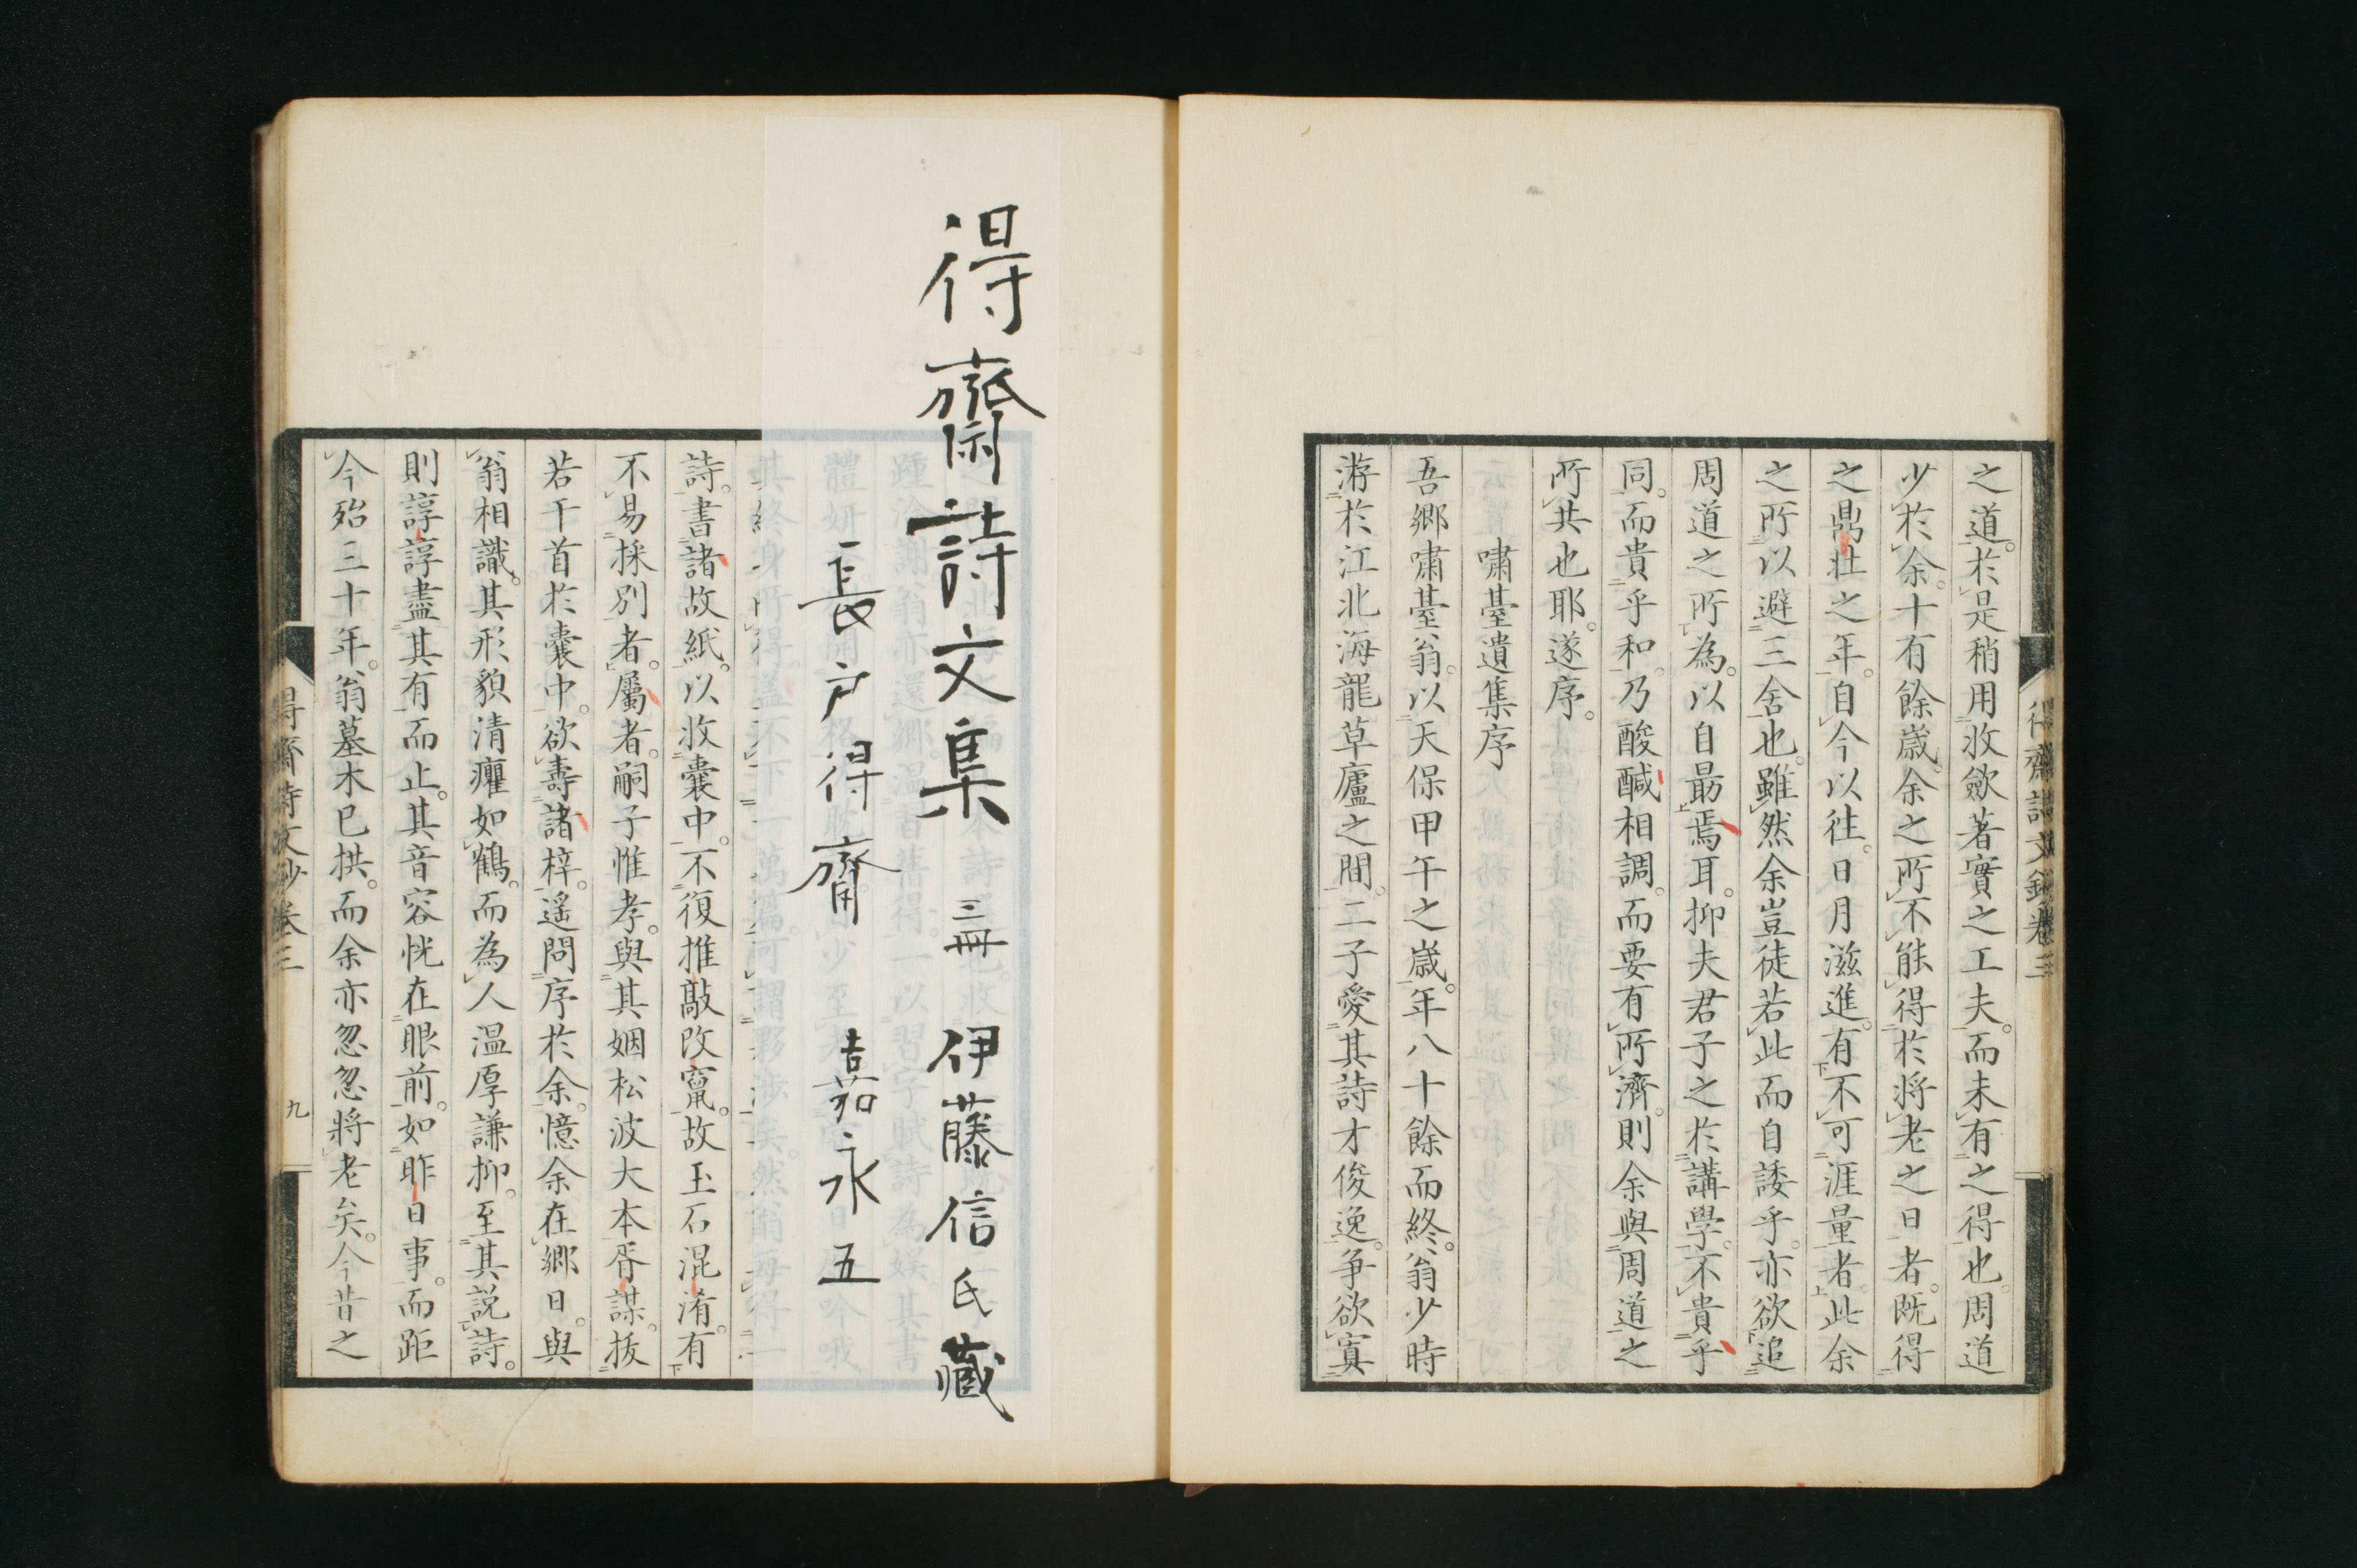 得齋詩文鈔卷三
之道。於是稍用收斂著實之工夫。而未有之得也。周道
少於余。十有餘歳。余之所不能得於將老之日者。既得
之鼎壮之年。自今以往。日月滋進。有不可涯量者。此余
之所以避三舍也。雖然余豈徒若此而自諉乎。亦欲追
周道之所為。以自勗焉耳。抑夫君子之於講學。不貴乎
同。而貴乎和。乃酸醎相調。而要有所濟。則余與周道之
所共也耶。遂序。
嘯臺遺集序
吾郷嘯臺翁。以天保甲午之歳。年八十餘而終。翁少時
游於江北海龍草廬之間。二子愛其詩才俊逸。争欲寘
得齋詩文集 三冊 伊藤信氏藏
長戸得齋 嘉永五
詩。書諸故紙。以收嚢中。不復推敲改竄。故玉石混淆。有
不易採別者。屬者。嗣子惟孝。與其姻松波大本胥謀。抜
若干首於嚢中。欲壽諸梓。遥問序於余。憶余在郷日。與
翁相識。其形貌清癯如鶴。而為人温厚謙抑。至其説詩。
則諄諄盡其有而止。其音容恍在眼前。如昨日事。而距
今殆三十年。翁墓木已拱。而余亦忽忽將老矣。今昔之
得齋詩文鈔卷三 九